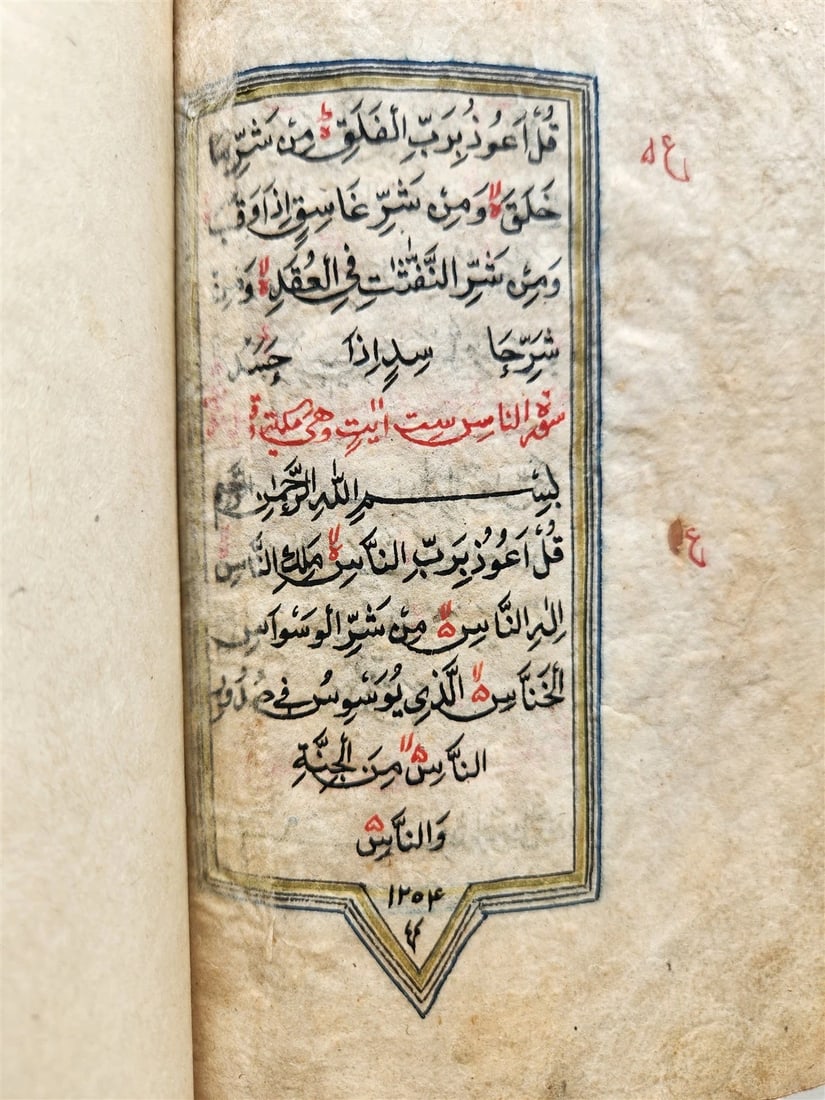 قُلْ اَعُوْذُ بِرَبِّ الْفَلَقِ ۙ مِنْ شَرِّ مَا
خَلَقَ ۙ وَمِنْ شَرِّ غَاسِقٍ اِذَا وَقَبَ
وَمِنْ شَرِّ النَّفّٰثٰتِ فِي الْعُقَدِ ۙ وَمِنْ
شَرِّ حَا سِدٍ اِذَا حَسَدَ
سورة الناس ست ايٰت وهى مكية
بِسْمِ اللّٰهِ الرَّحْمٰنِ الرحيم
قُلْ اَعُوْذُ بِرَبِّ النَّاسِ ۙ مَلِكِ النَّاسِ
اِلٰهِ النَّاسِ ۙ مِنْ شَرِّ الْوَسْوَاسِ
الْخَنَّاسِ ۙ الَّذِي يُوَسْوِسُ فِي صُدُوْرِ
النَّاسِ ۙ مِنَ الْجِنَّةِ
وَالنَّاسِ
١٢٥۴
ع ۵
ع